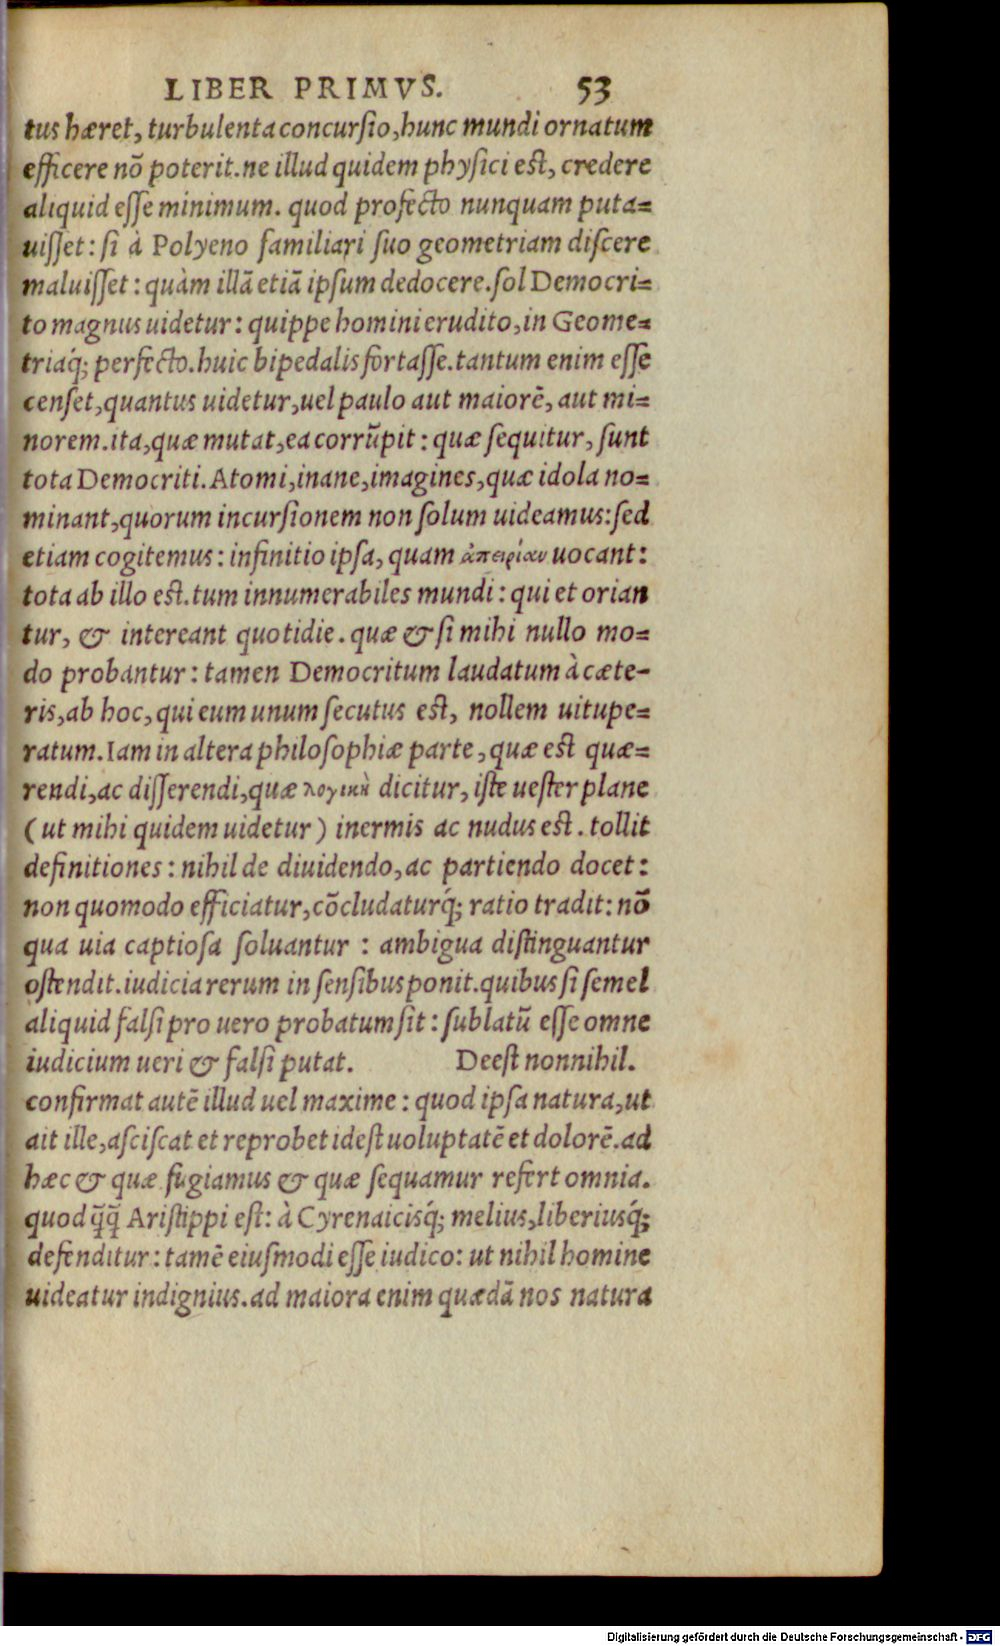 LIBER PRIMVS. 53
tus hæret, turbulenta concurſio, hunc mundi ornatum
efficere nõ poterit. ne illud quidem phyſici eſt, credere
aliquid eſſe minimum. quod profecto nunquam puta=
uiſſet: ſi à Polyeno familiari ſuo geometriam diſcere
maluiſſet: quàm illã etiã ipſum dedocere. ſol Democri=
to magnus uidetur: quippe homini erudito, in Geome=
triaq́; perfecto. huic bipedalis fortaſſe. tantum enim eſſe
cenſet, quantus uidetur, uel paulo aut maiorẽ, aut mi=
norem. ita, quæ mutat, ea corrũpit: quæ ſequitur, ſunt
tota Democriti. Atomi, inane, imagines, quæ idola no=
minant, quorum incurſionem non ſolum uideamus: ſed
etiam cogitemus: infinitio ipſa, quam ἀπειρίαν uocant:
tota ab illo eſt. tum innumerabiles mundi: qui et orian
tur, & intereant quotidie. quæ & ſi mihi nullo mo=
do probantur: tamen Democritum laudatum à cæte-
ris, ab hoc, qui eum unum ſecutus eſt, nollem uitupe=
ratum. Iam in altera philoſophiæ parte, quæ eſt quæ=
rendi, ac diſſerendi, quæ λογικὴ dicitur, iſte ueſter plane
(ut mihi quidem uidetur) inermis ac nudus eſt. tollit
definitiones: nihil de diuidendo, ac partiendo docet:
non quomodo efficiatur, cõcludaturq́; ratio tradit: nõ
qua uia captioſa ſoluantur : ambigua diſtinguantur
oſtendit. iudicia rerum in ſenſibus ponit. quibus ſi ſemel
aliquid falſi pro uero probatum ſit: ſublatũ eſſe omne
iudicium ueri & falſi putat. Deeſt nonnihil.
confirmat autẽ illud uel maxime: quod ipſa natura, ut
ait ille, aſciſcat et reprobet id eſt uoluptatẽ et dolorẽ. ad
hæc & quæ fugiamus & quæ ſequamur refert omnia.
quod q̃q̃ Ariſtippi eſt: à Cyrenaicisq́; melius, liberiusq́;
defenditur: tamẽ eiuſmodi eſſe iudico: ut nihil homine
uideatur indignius. ad maiora enim quædã nos natura
Digitalisierung gefördert durch die Deutsche Forschungsgemeinschaft - DFG